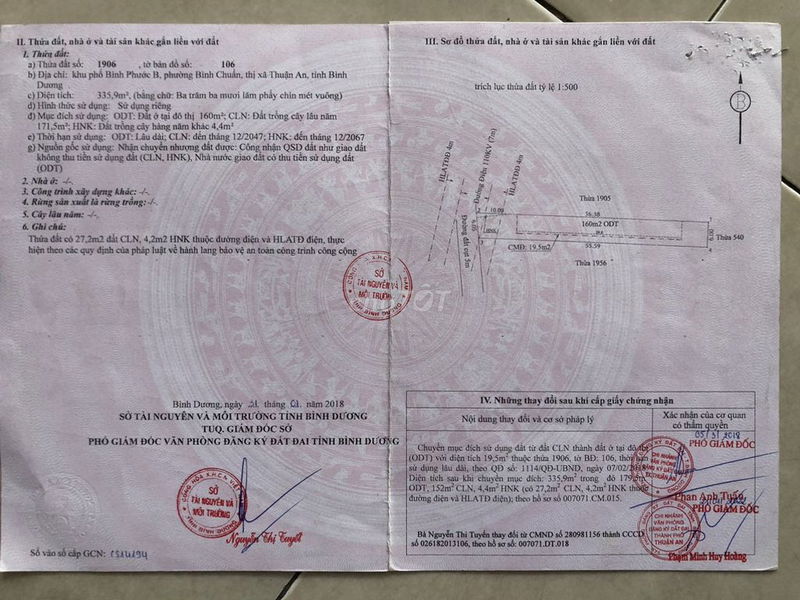 II. Thửa đất, nhà ở và tài sản khác gắn liền với đất
1. Thửa đất:
a) Thửa đất số: 1906 , tờ bản đồ số: 106
b) Địa chỉ: khu phố Bình Phước B, phường Bình Chuẩn, thị xã Thuận An, tỉnh Bình
Dương
c) Diện tích: 335,9m², (bằng chữ: Ba trăm ba mươi lăm phẩy chín mét vuông)
d) Hình thức sử dụng: Sử dụng riêng
đ) Mục đích sử dụng: ODT: Đất ở tại đô thị 160m²; CLN: Đất trồng cây lâu năm
171,5m²; HNK: Đất trồng cây hàng năm khác 4,4m²
e) Thời hạn sử dụng: ODT: Lâu dài; CLN: đến tháng 12/2047; HNK: đến tháng 12/2067
g) Nguồn gốc sử dụng: Nhận chuyển nhượng đất được: Công nhận QSD đất như giao đất
không thu tiền sử dụng đất (CLN, HNK), Nhà nước giao đất có thu tiền sử dụng đất
(ODT)
2. Nhà ở: -/-
3. Công trình xây dựng khác: -/-
4. Rừng sản xuất là rừng trồng: -/-
5. Cây lâu năm: -/-
6. Ghi chú:
Thửa đất có 27,2m2 đất CLN, 4,2m2 HNK thuộc đường điện và HLATĐ điện, thực
hiện theo các quy định của pháp luật về hành lang bảo vệ an toàn công trình công cộng
SỞ
TÀI NGUYÊN VÀ
MÔI TRƯỜNG
Bình Dương, ngày tháng 01 năm 2018
SỞ TÀI NGUYÊN VÀ MÔI TRƯỜNG TỈNH BÌNH DƯƠNG
TUQ. GIÁM ĐỐC SỞ
PHÓ GIÁM ĐỐC VĂN PHÒNG ĐĂNG KÝ ĐẤT ĐAI TỈNH BÌNH DƯƠNG
SỞ
TÀI NGUYÊN VÀ
MÔI TRƯỜNG
Nguyễn Thị Tuyết
Số vào sổ cấp GCN:
III. Sơ đồ thửa đất, nhà ở và tài sản khác gắn liền với đất
trích lục thửa đất tỷ lệ 1:500
B
HLATĐĐ 4m
Đường Điện 110KV (7m)
HLATĐĐ 4m
Thửa 1905
10.00
56.38
160m2 ODT
6.00
Thửa 540
HNK
Đường đất rộng 5m
CMĐ: 19,5m2
55.59
Thửa 1956
IV. Những thay đổi sau khi cấp giấy chứng nhận
Nội dung thay đổi và cơ sở pháp lý
Xác nhận của cơ quan
có thẩm quyền
Chuyển mục đích sử dụng đất từ đất CLN thành đất ở tại đô thị
(ODT) với diện tích 19,5m² thuộc thửa 1906, tờ BĐ: 106, thời hạn
sử dụng lâu dài, theo QĐ số: 1114/QĐ-UBND, ngày 07/02/
Diện tích sau khi chuyển mục đích: 335,9m² trong đó 179,5m²
ODT, 152m² CLN, 4,4m² HNK (có 27,2m² CLN, 4,2m² HNK thuộc
đường điện và HLATĐ điện); theo hồ sơ số 007071.CM.015.
05/3/2018
PHÓ GIÁM ĐỐC
CHI NHÁNH
VĂN PHÒNG
ĐĂNG KÝ ĐẤT ĐAI
Phan Anh Tuấn
PHÓ GIÁM ĐỐC
Bà Nguyễn Thị Tuyền thay đổi từ CMND số 280981156 thành CCCD
số 026182013106, theo hồ sơ số: 007071.DT.018
CHI NHÁNH
VĂN PHÒNG
ĐĂNG KÝ ĐẤT ĐAI
THÀNH PHỐ
THUẬN AN
Phạm Minh Huy Hoàng